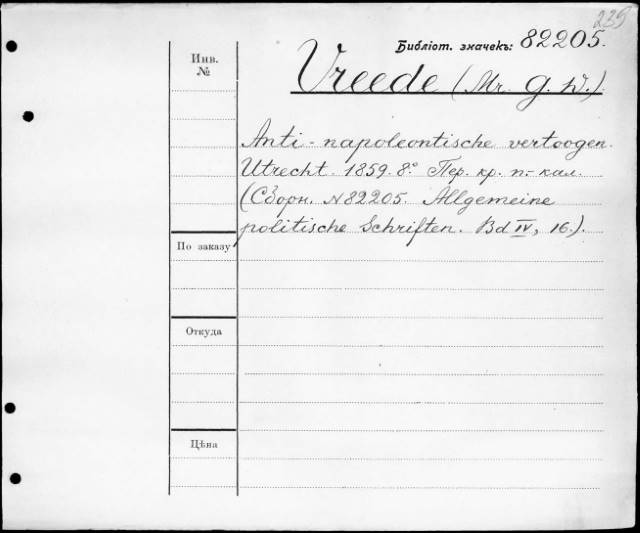 239
Библіот. значекъ: 82205.
Инв. №
Vreede (Mr. G. W.).
Anti-napoleontische vertoogen.
Utrecht. 1859. 8.° Пер. кр. п.-кал.
(Сборн. N 82205. Allgemeine
politische Schriften. Bd IV, 16.).
По заказу
Откуда
Цѣна